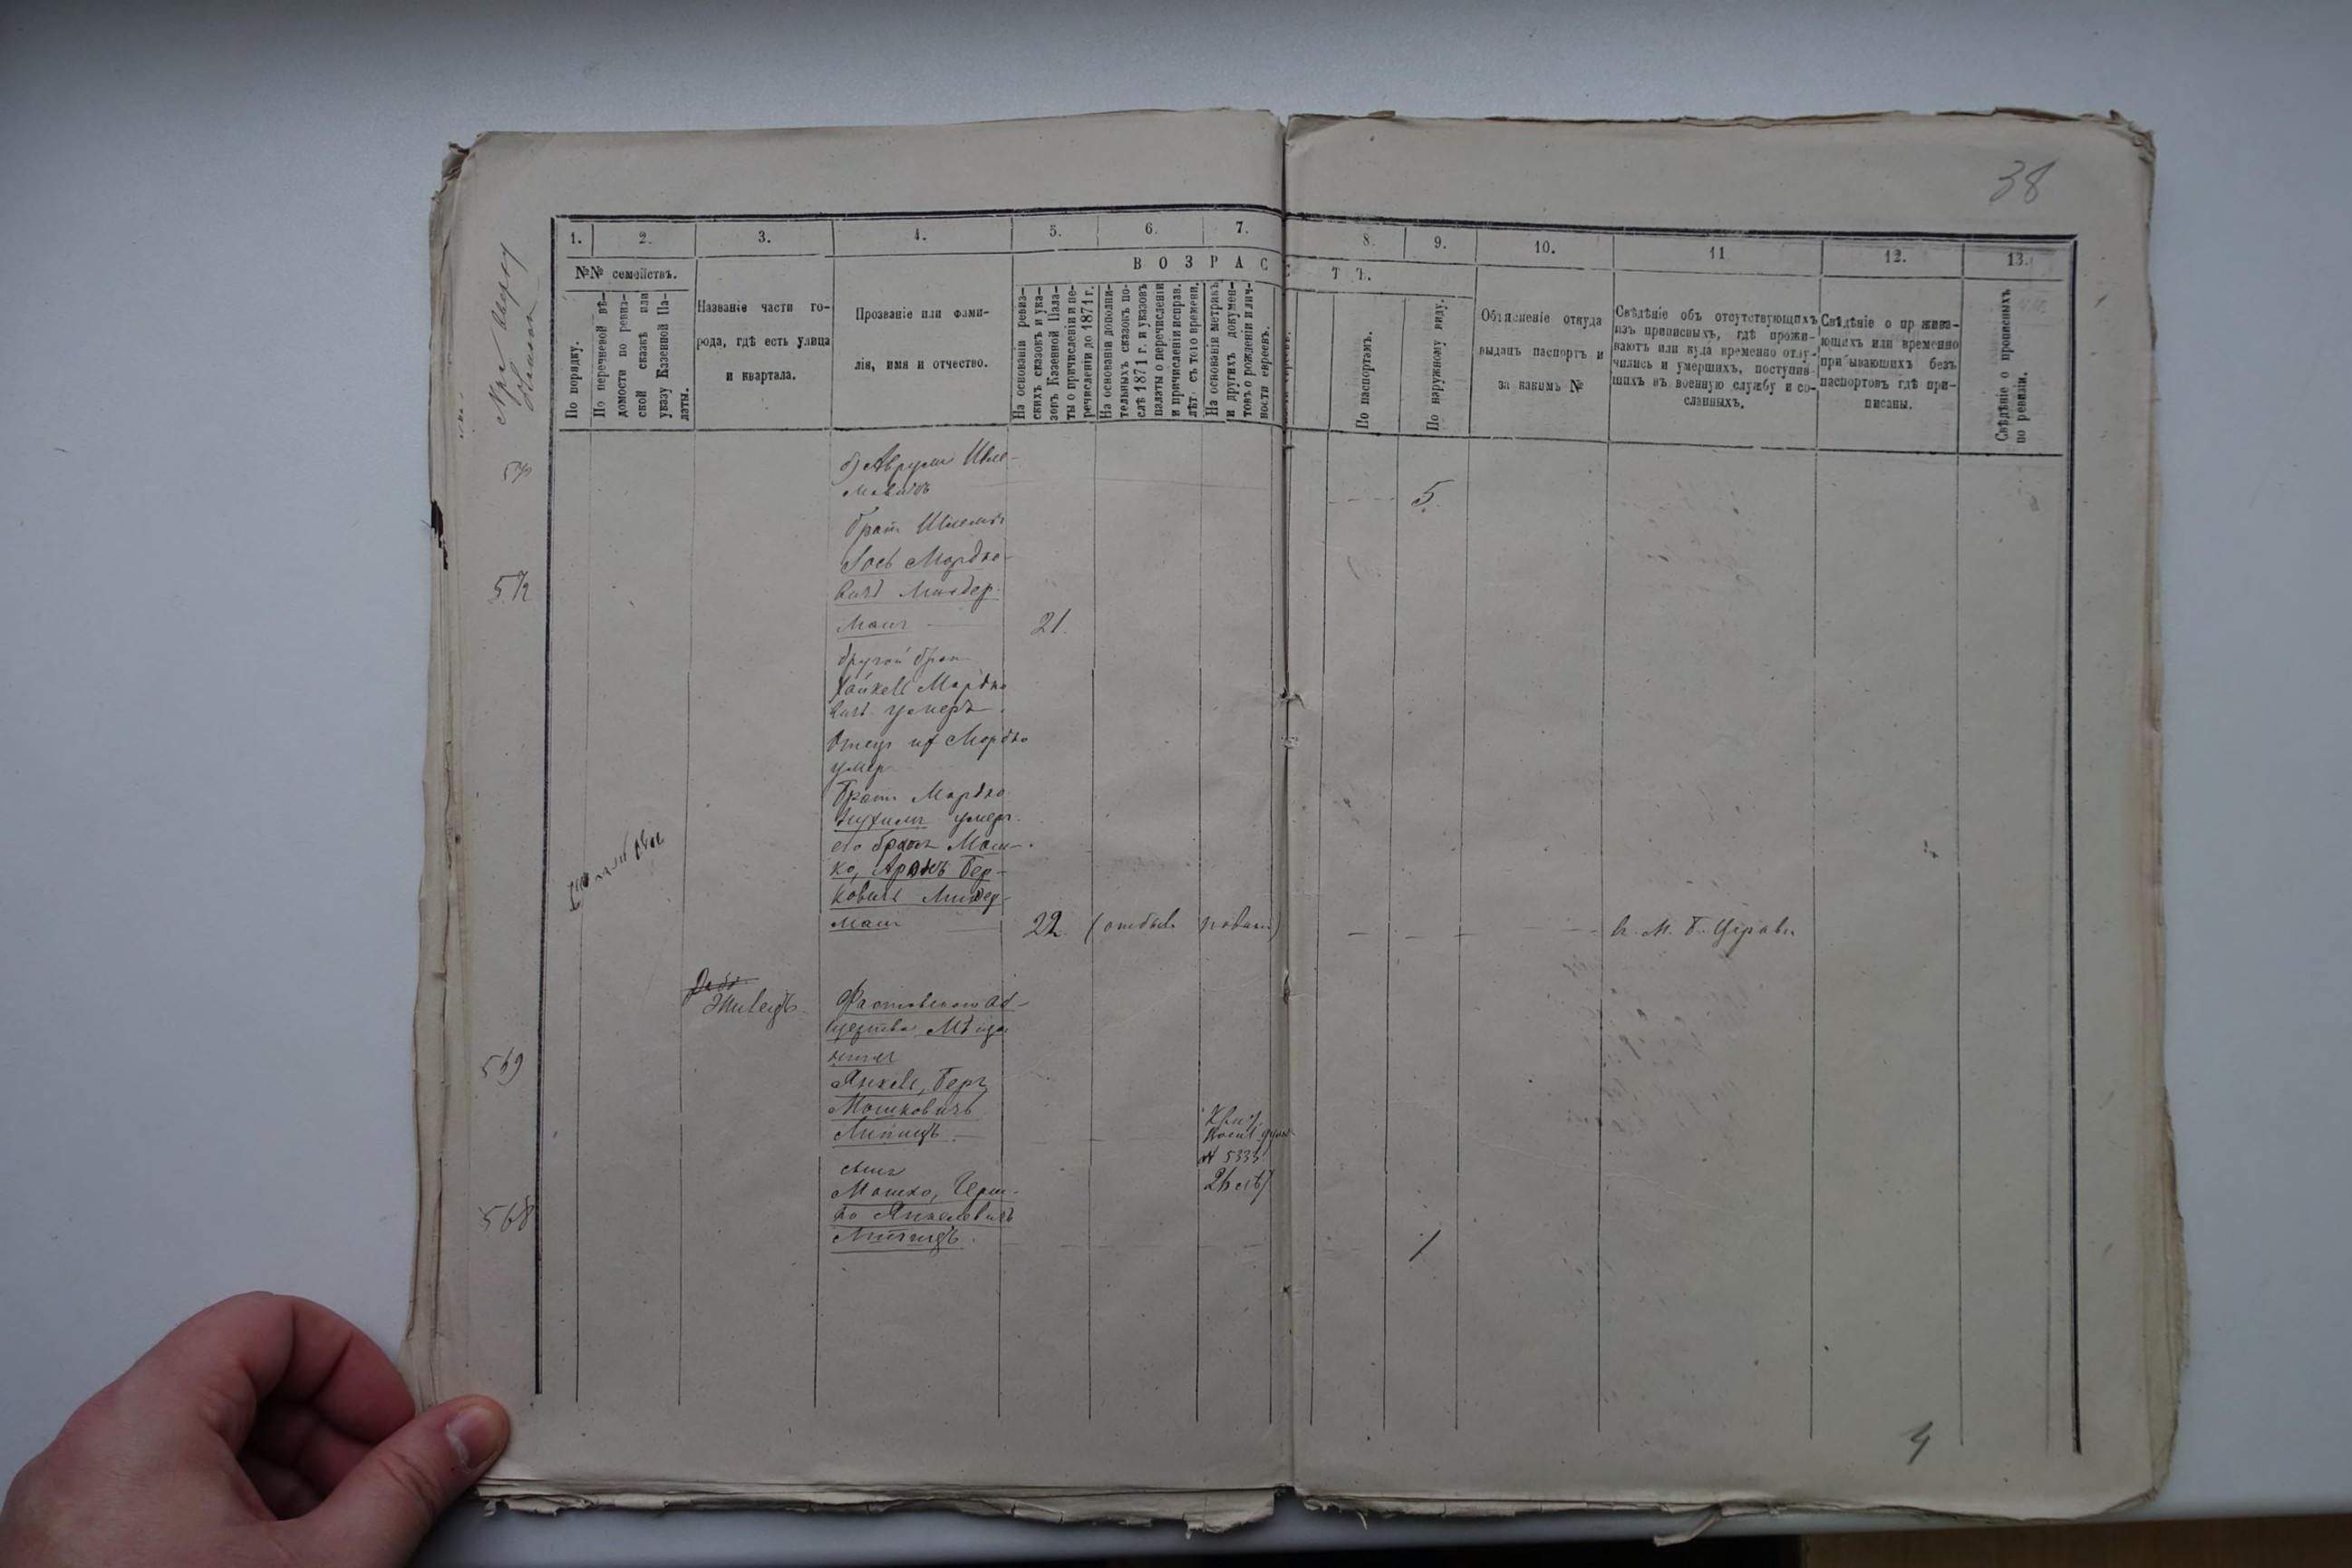 38
1. 2. 3. 4. 5. 6. 7. 8. 9. 10. 11 12. 13.
№№ семействъ.
В О З Р А С Т Ъ.
По порядку.
По перечневой вѣ-
домости по ревиз-
ской сказкѣ или
указу Казенной Па-
латы.
Названіе части го-
рода, гдѣ есть улица
и квартала.
Прозваніе или фами-
лія, имя и отчество.
На основаніи ревиз-
скихъ сказокъ и ука-
зовъ Казенной Пала-
ты о причисленіи и пе-
речисленіи до 1871 г.
На основаніи дополни-
тельныхъ сказокъ по-
слѣ 1871 г. и указовъ
палаты о перечисленіи
и причисленіи исправ.
лѣт. съ того времени.
На основаніи метрикъ
и другихъ докумен-
товъ о рожденіи и лич-
ности евреевъ.
По паспортамъ.
По наружному виду.
Объясненіе откуда
выданъ паспортъ и
за какимъ №
Свѣдѣніе объ отсутствующихъ
изъ приписныхъ, гдѣ прожи-
ваютъ или куда временно отлу-
чились и умершихъ, поступив-
шихъ въ военную службу и со-
сланныхъ.
Свѣдѣніе о прожива-
ющихъ или временно
пребывающихъ безъ
паспортовъ гдѣ при-
писаны.
Свѣдѣніе о прописныхъ
по ревизіи.
б) Аврумъ Шле-
мовичъ 5.
братъ Шлемы
Іось Мордко-
вичъ Линдер-
572
манъ 21.
другой братъ
Хайкель Мордко
вичъ умеръ.
Отецъ их Мордко
умер
Братъ Мордко
Нухимъ умеръ.
его братъ Мош-
ко, Аронъ Бер-
ковичъ Линдер-
манъ 22. (отбыв. повин.)
Живецъ.
Фастовскаго об-
щества Мѣща
нинъ
569
Янкель, Беръ
Мошковичъ
Липицъ
№ 5333
26 лѣт)
сынъ
Мошко, Герш-
ко Янкелевичъ
568
Липицъ. 1
4